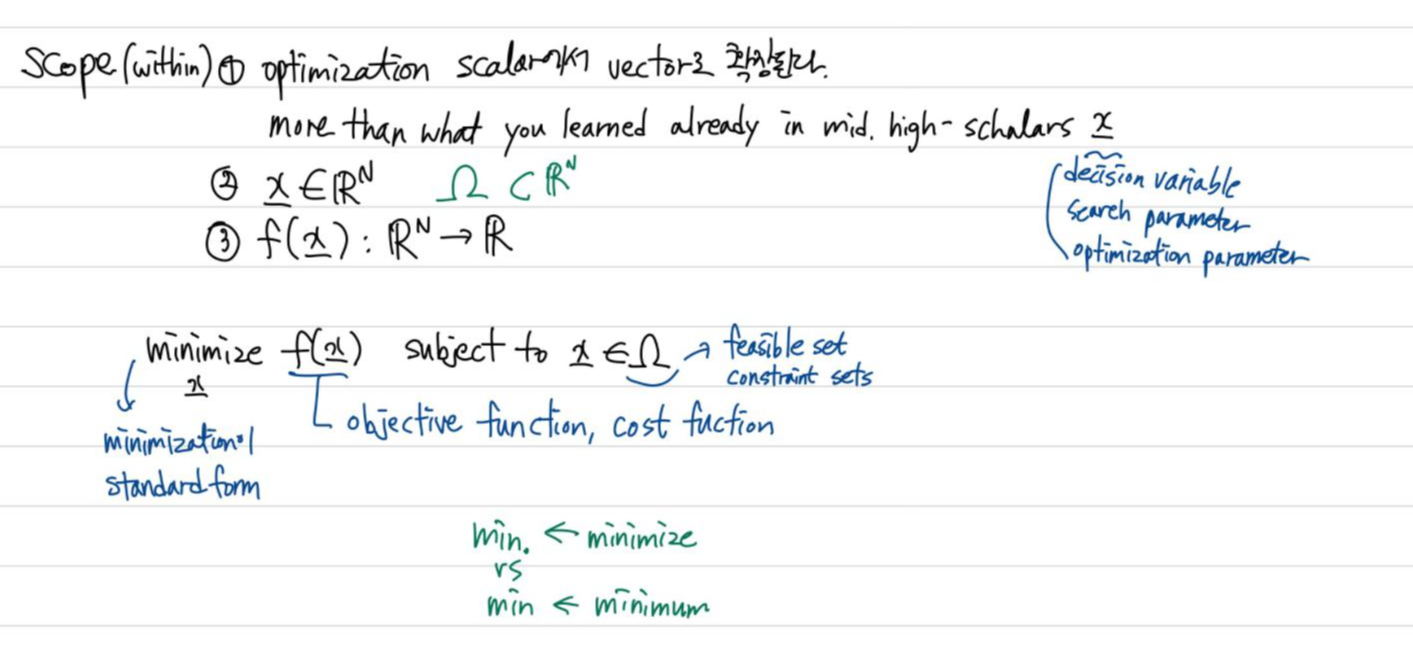 Scope(within) ① optimization scalar에서 vector로 확장한다.
more than what you learned already in mid. high- schalars x
② x ∈ ℝᴺ Ω ⊂ ℝᴺ
③ f(x) : ℝᴺ → ℝ
decision variable
search parameter
optimization parameter
minimize f(x) subject to x ∈ Ω → feasible set
x
constraint sets
objective function, cost fuction
minimization이
standard form
min. ← minimize
vs
min ← minimum